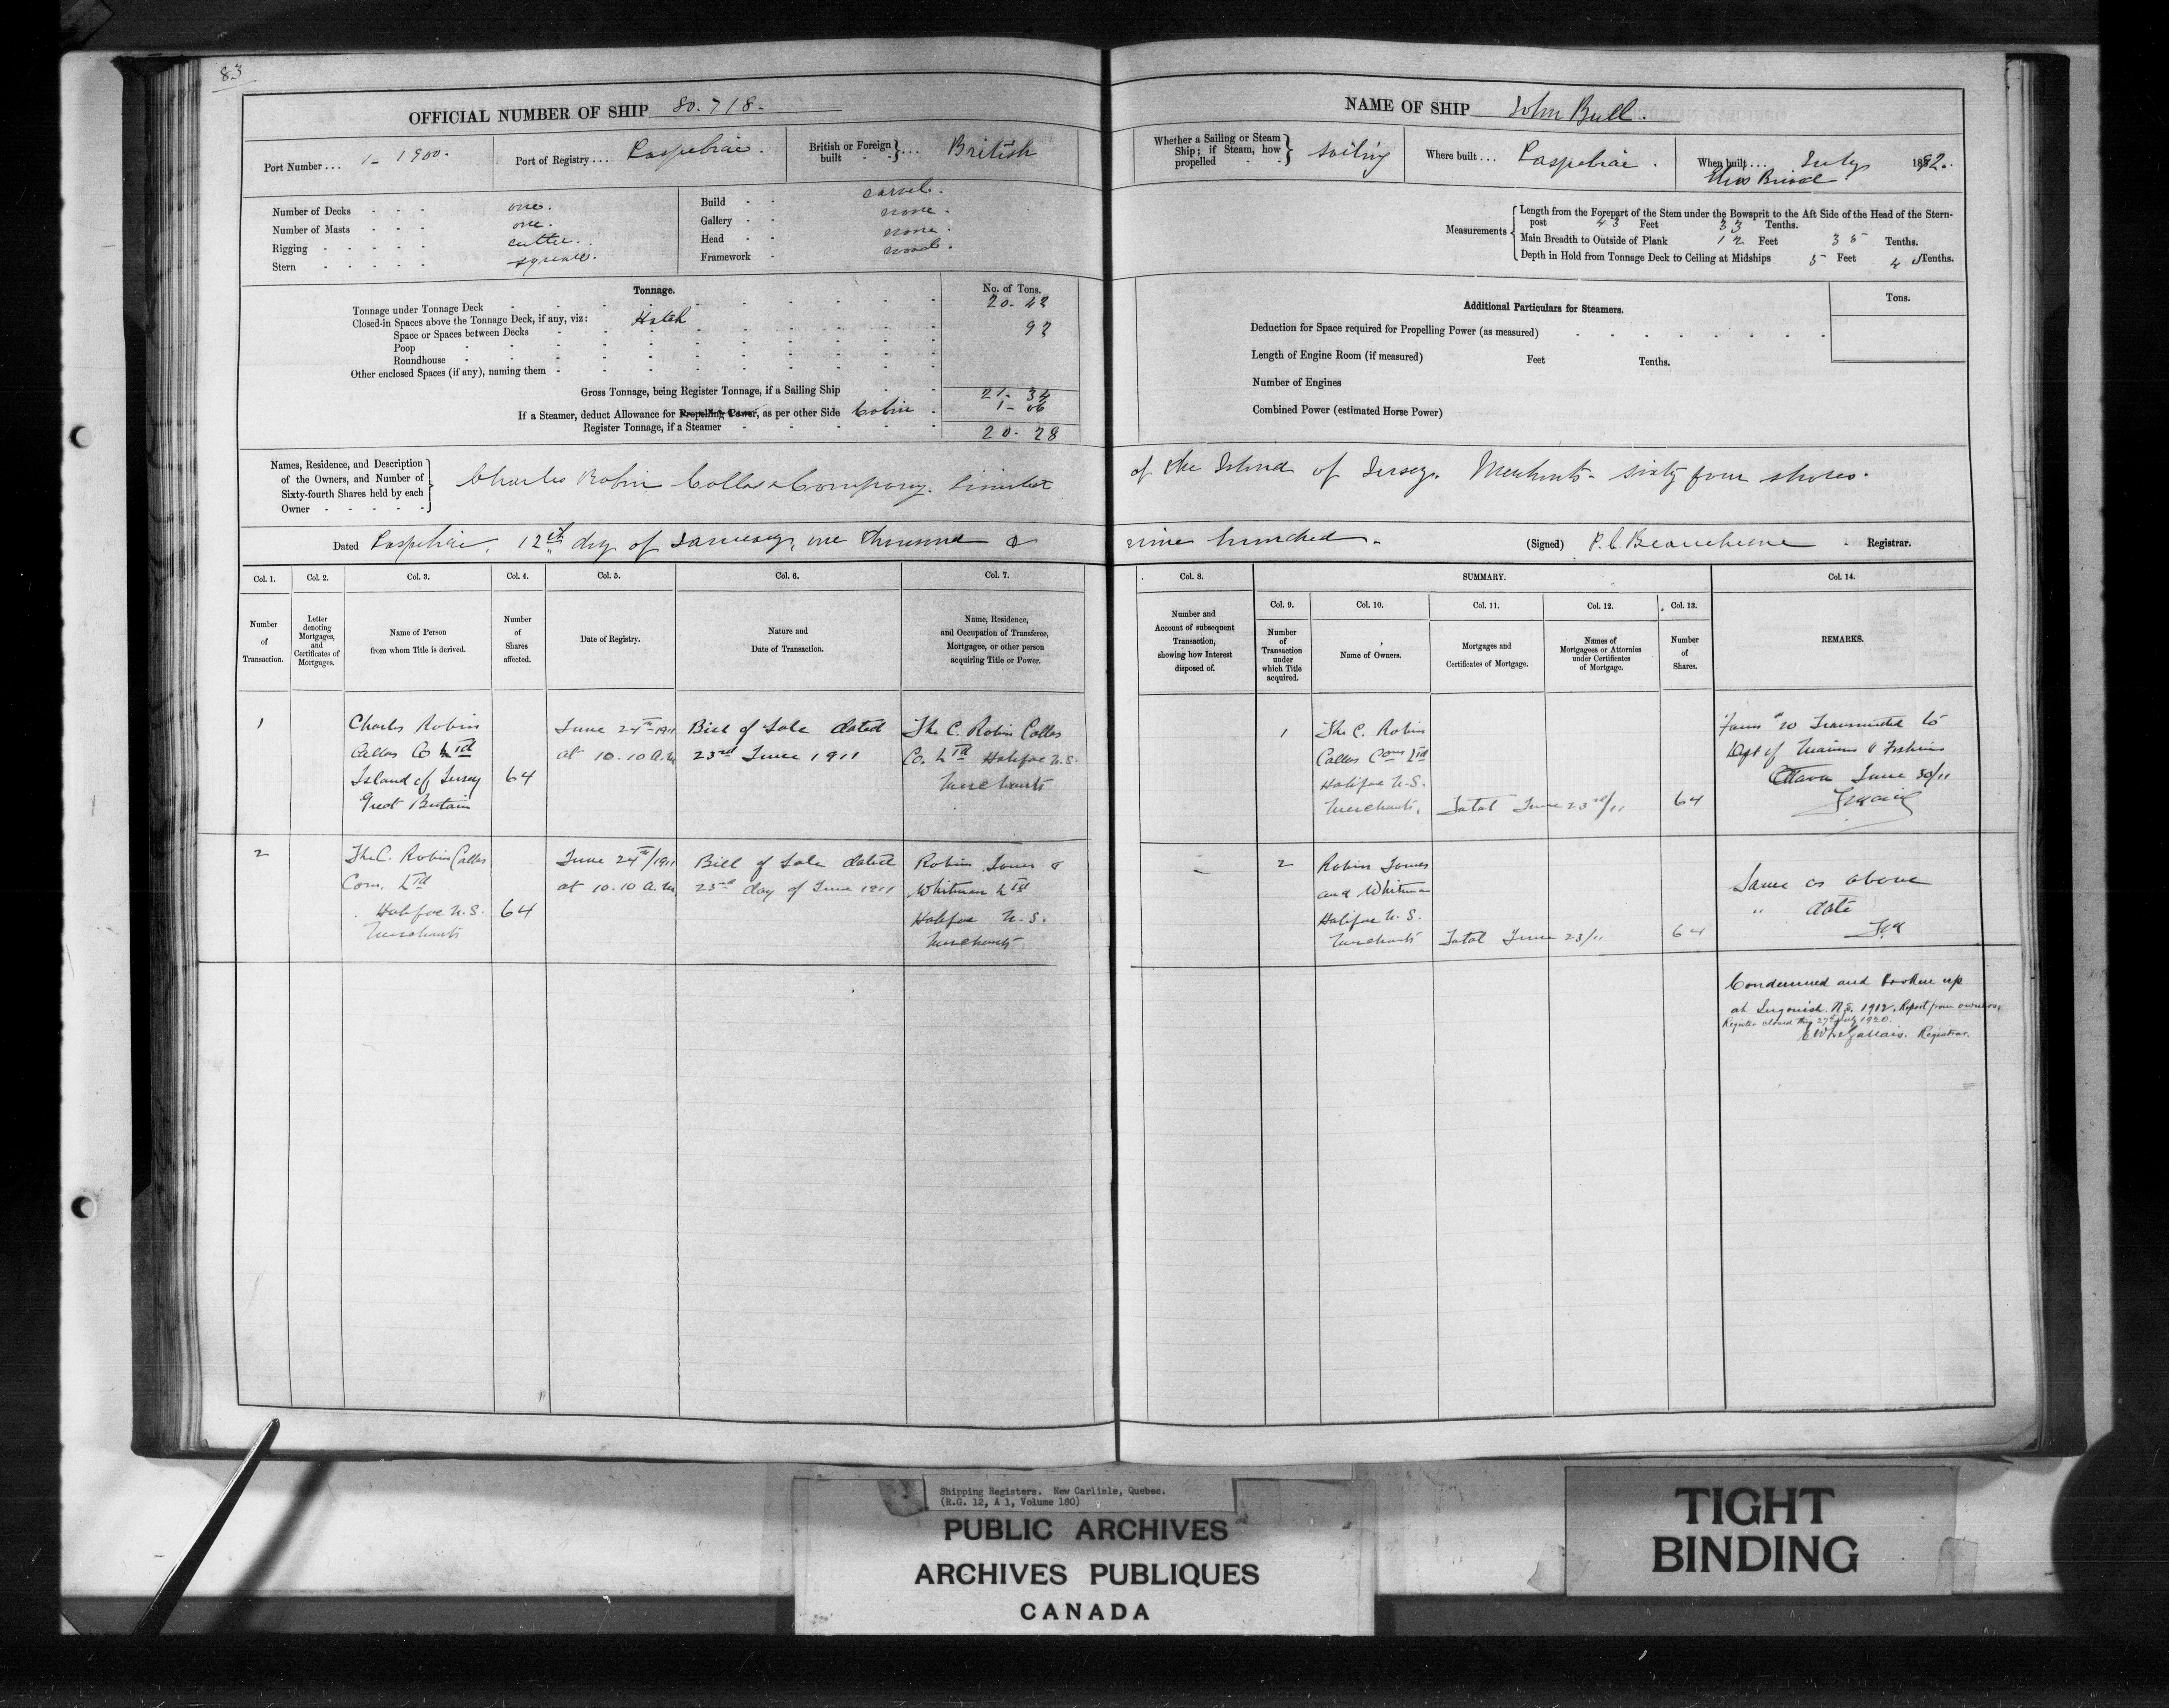 83
OFFICIAL NUMBER OF SHIP 80.718.
Port Number ... 1-1900.
Port of Registry ... Paspebiac.
British or Foreign built ... British
Number of Decks one.
Number of Masts one.
Rigging cutter.
Stern square.
Build carvel.
Gallery none.
Head none.
Framework wood.
Tonnage.
No. of Tons.
Tonnage under Tonnage Deck 20.42
Closed-in Spaces above the Tonnage Deck, if any, viz: Hatch
Space or Spaces between Decks 92
Poop
Roundhouse
Other enclosed Spaces (if any), naming them
Gross Tonnage, being Register Tonnage, if a Sailing Ship 21-34
If a Steamer, deduct Allowance for Propelling Power, as per other Side 1-06
Register Tonnage, if a Steamer 20-28
Names, Residence, and Description of the Owners, and Number of Sixty-fourth Shares held by each Owner
Charles Robin Collas & Company. Limited
Dated Paspebiac, 12th day of January, one thousand &
NAME OF SHIP John Bull.
Whether a Sailing or Steam Ship; if Steam, how propelled sailing
Where built ... Paspebiac.
When built ... July 1882.
Measurements
Length from the Forepart of the Stem under the Bowsprit to the Aft Side of the Head of the Stern-
post 43 Feet 33 Tenths.
Main Breadth to Outside of Plank 12 Feet 35 Tenths.
Depth in Hold from Tonnage Deck to Ceiling at Midships 5 Feet 4 Tenths.
Additional Particulars for Steamers.
Tons.
Deduction for Space required for Propelling Power (as measured)
Length of Engine Room (if measured) Feet Tenths.
Number of Engines
Combined Power (estimated Horse Power)
of the Island of Jersey. Merchants- sixty four shares.
nine hundred.
(Signed) P.C. Beauchesne Registrar.
Col. 1. Col. 2. Col. 3. Col. 4. Col. 5. Col. 6. Col. 7.
Number of Transaction.
Letter denoting Mortgages, and Certificates of Mortgages.
Name of Person from whom Title is derived.
Number of Shares affected.
Date of Registry.
Nature and Date of Transaction.
Name, Residence, and Occupation of Transferee, Mortgagee, or other person acquiring Title or Power.
1
Charles Robin
Collas Co Ltd
Island of Jersey
Great Britain
64
June 24th 1911
at 10.10 a.m
Bill of Sale dated
23rd June 1911
The C. Robin Collas
Co. Ltd Halifax N.S.
Merchants
2
The C. Robin Collas
Com. Ltd
Halifax N.S.
Merchants
64
June 24th/1911
at 10.10 a.m,
Bill of Sale dated
23rd day of June 1911
Robin Jones &
Whitman Ltd
Halifax N.S.
Merchants
Col. 8.
SUMMARY.
Col. 14.
Col. 9. Col. 10. Col. 11. Col. 12. Col. 13.
Number and Account of subsequent Transaction, showing how Interest disposed of.
Number of Transaction under which Title acquired.
Name of Owners.
Mortgages and Certificates of Mortgage.
Names of Mortgagees or Attornies under Certificates of Mortgage.
Number of Shares.
REMARKS.
1
The C. Robin
Collas Com Ltd
Halifax N.S.
Merchants,
Total June 23rd/11
64
Form 20 Transmitted to
Dept of Marine & Fisheries
Ottawa June 30/11
2
Robin Jones
and Whitman
Halifax N.S.
Merchants
Total June 23/11
64
Same as above
" date
Condemned and broken up
at Ingonish. N.S. 1912. Report from owners.
Register closed this 27th July 1920.
Registrar.
Shipping Registers. New Carlisle, Quebec.
(R.G. 12, A 1, Volume 180)
PUBLIC ARCHIVES
ARCHIVES PUBLIQUES
CANADA
TIGHT
BINDING